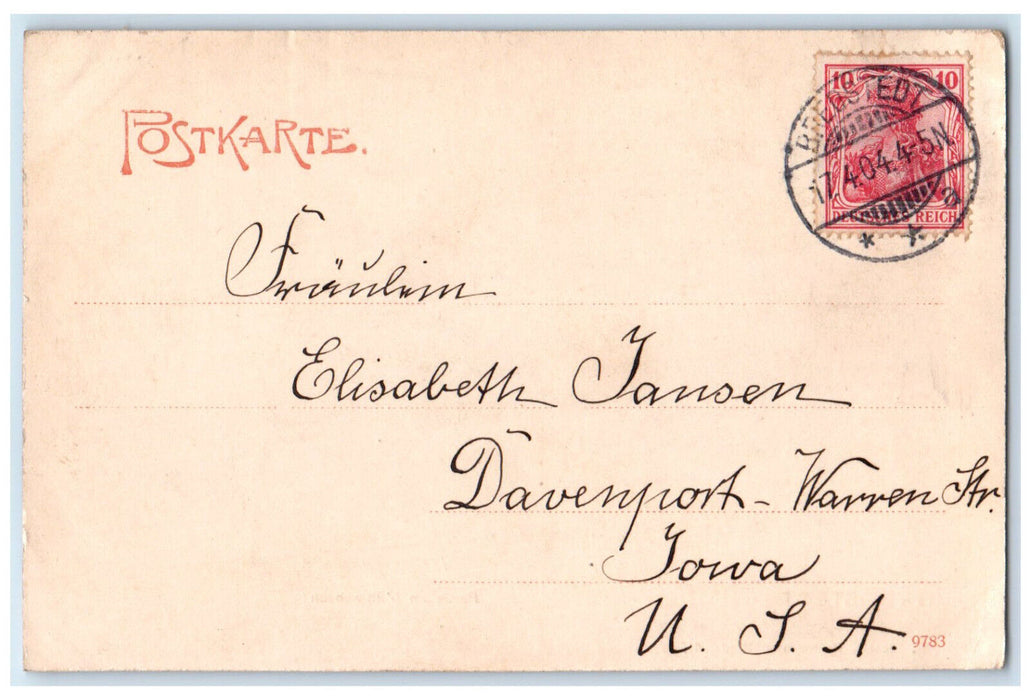 POSTKARTE.
10 10
BREDSTEDT
17.4.04.4-5N.
a
* *
DEUTSCHES REICH
Fräulein
Elisabeth Jansen
Davenport - Warren Str.
Iowa
U. S. A.
9783